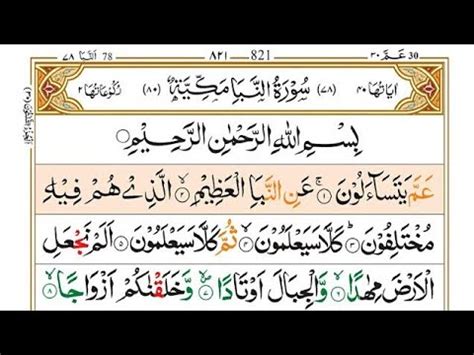 النبا ٧٨ 78 ٨٢١ 821 عم ٣٠ 30
اٰيَاتُهَا ٤٠ (٧٨) سُوْرَةُ النَّبَاِ مَكِّيَّةٌ (٨٠) رُكُوْعَاتُهَا ٢
بِسْمِ اللّٰهِ الرَّحْمٰنِ الرَّحِيْمِ
عَمَّ يَتَسَآءَلُوْنَ ۝١ عَنِ النَّبَاِ الْعَظِيْمِ ۝٢ الَّذِيْ هُمْ فِيْهِ
مُخْتَلِفُوْنَ ۝٣ كَلَّا سَيَعْلَمُوْنَ ۝٤ ثُمَّ كَلَّا سَيَعْلَمُوْنَ ۝٥ اَلَمْ نَجْعَلِ
الْاَرْضَ مِهٰدًا ۝٦ وَّالْجِبَالَ اَوْتَادًا ۝٧ وَّخَلَقْنٰكُمْ اَزْوَاجًا ۝٨